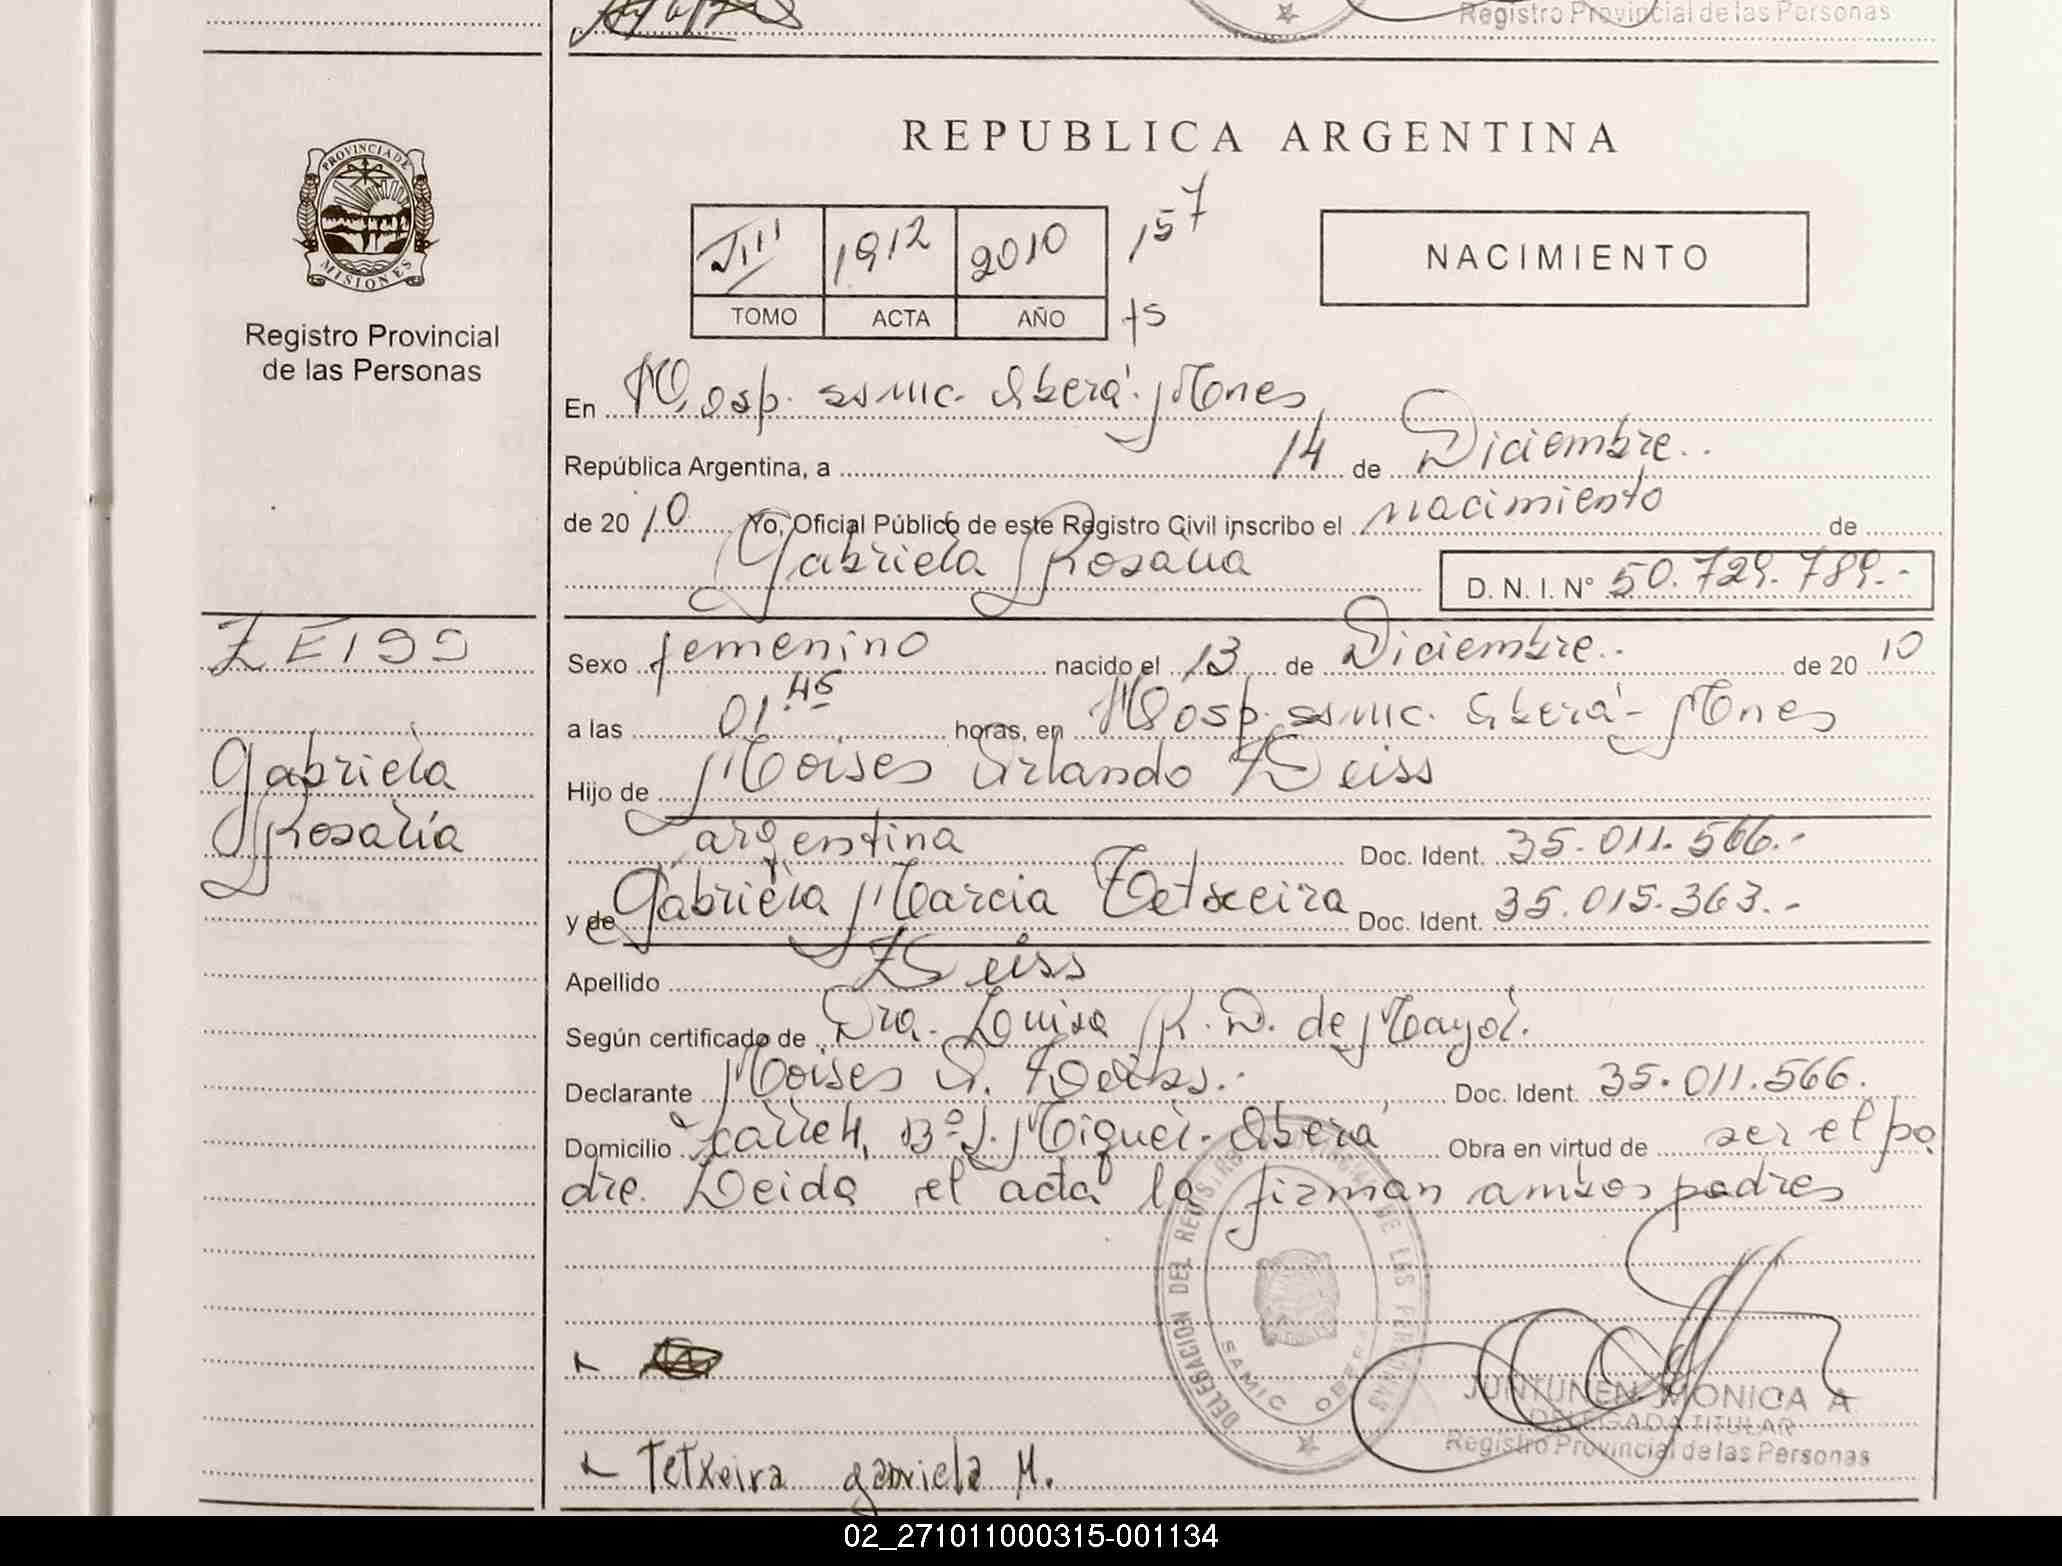 Registro Provincial de las Personas
PROVINCIA DE
MISIONES
Registro Provincial
de las Personas
REPUBLICA ARGENTINA
VIII 1912 2010 157
TOMO ACTA AÑO ts
NACIMIENTO
En Hosp. ssmic. Oberá. Mones
República Argentina, a 14 de Diciembre..
de 2010 Yo, Oficial Público de este Registro Civil inscribo el nacimiento de
Gabriela Rosalia D. N. I. N° 50.729.789.-
ZEISS
Gabriela
Rosalía
Sexo femenino nacido el 13 de Diciembre.. de 2010
a las 01.45 horas, en Hosp. ssmic. Oberá - Mones
Hijo de Moises Orlando Zeiss
argentina Doc. Ident. 35.011.566.-
y de Gabriela Marcia Tetxeira Doc. Ident. 35.015.363.-
Apellido Zeiss
Según certificado de Dra. Luisa R. D. de Mayol.
Declarante Moises O. Zeiss.- Doc. Ident. 35.011.566.
Domicilio calle 4, Bº S. Miguel - Oberá Obra en virtud de ser el pa
dre. Leida el acta la firman ambos padres
DELEGACION DEL REGISTRO PROVINCIAL DE LAS PERSONAS
SAMIC OBERA
JUNTUNEN MONICA A
DELEGADA TITULAR
Registro Provincial de las Personas
Tetxeira gabriela M.
02_271011000315-001134